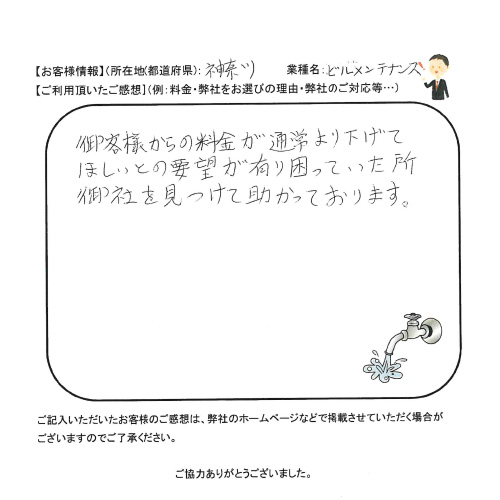 【お客様情報】(所在地(都道府県): 神奈川 業種名: ビルメンテナンス
【ご利用頂いたご感想】(例:料金・弊社をお選びの理由・弊社のご対応等…)
御客様からの料金が通常より下げて
ほしいとの要望が有り困っていた所
御社を見つけて助かっております。
ご記入いただいたお客様のご感想は、弊社のホームページなどで掲載させていただく場合が
ございますのでご了承ください。
ご協力ありがとうございました。